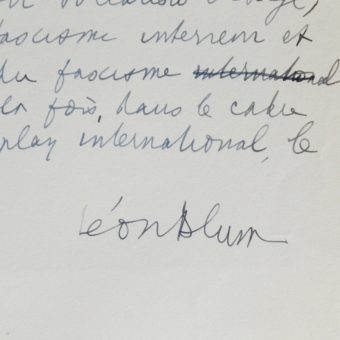 fascisme interieur et
du fascisme international
la fois, dans le cadre
play international, le
Léon Blum